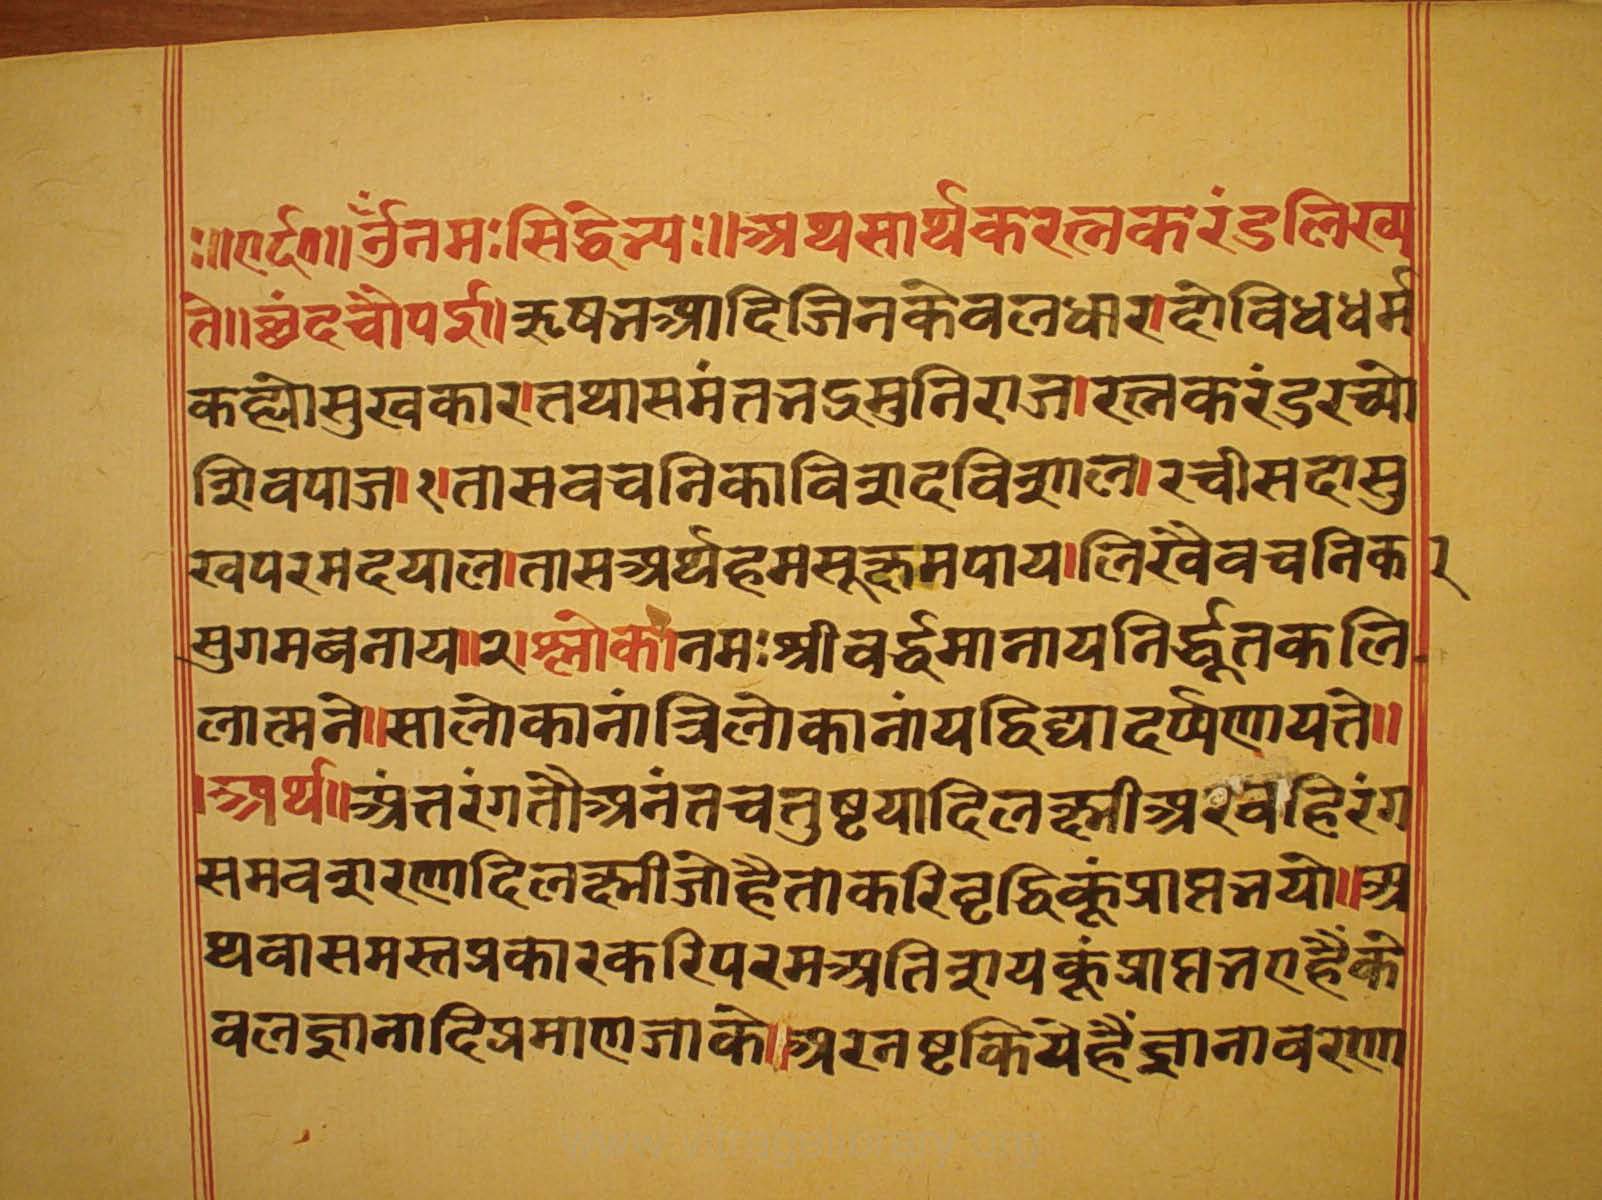 :॥एर्द०॥ ॐनमःसिद्धेभ्यः॥अथसार्थकरत्नकरंडलिख्य
ते॥छंदचौपई॥ऋषभआदिजिनकेवलधार।दोविधधर्म
कह्योसुखकार।तथासमंतभद्रमुनिराज।रत्नकरंडरच्यो
शिवपाज।१।तासवचनिकाविशदविशाल।रचीसदासु
खपरमदयाल।तासअर्थहमसूक्ष्मपाय।लिखैवचनिका
सुगमबनाय॥२।श्लोक।नमःश्रीवर्द्धमानायनिर्द्धूतकलि
लात्मने॥सालोकानांत्रिलोकानांयद्विद्यादर्प्पणायते॥
।अर्थ॥अंतरंगतौअनंतचतुष्टयादिलक्ष्मीअरवहिरंग
समवशरणादिलक्ष्मीजोहैताकरिवृद्धिकूंप्राप्तभयो॥अ
थवासमस्तप्रकारकरिपरमअतिशयकूंप्राप्तभएहैंके
वलज्ञानादिप्रमाणजाके॥अरनष्टकियेहैंज्ञानावरण